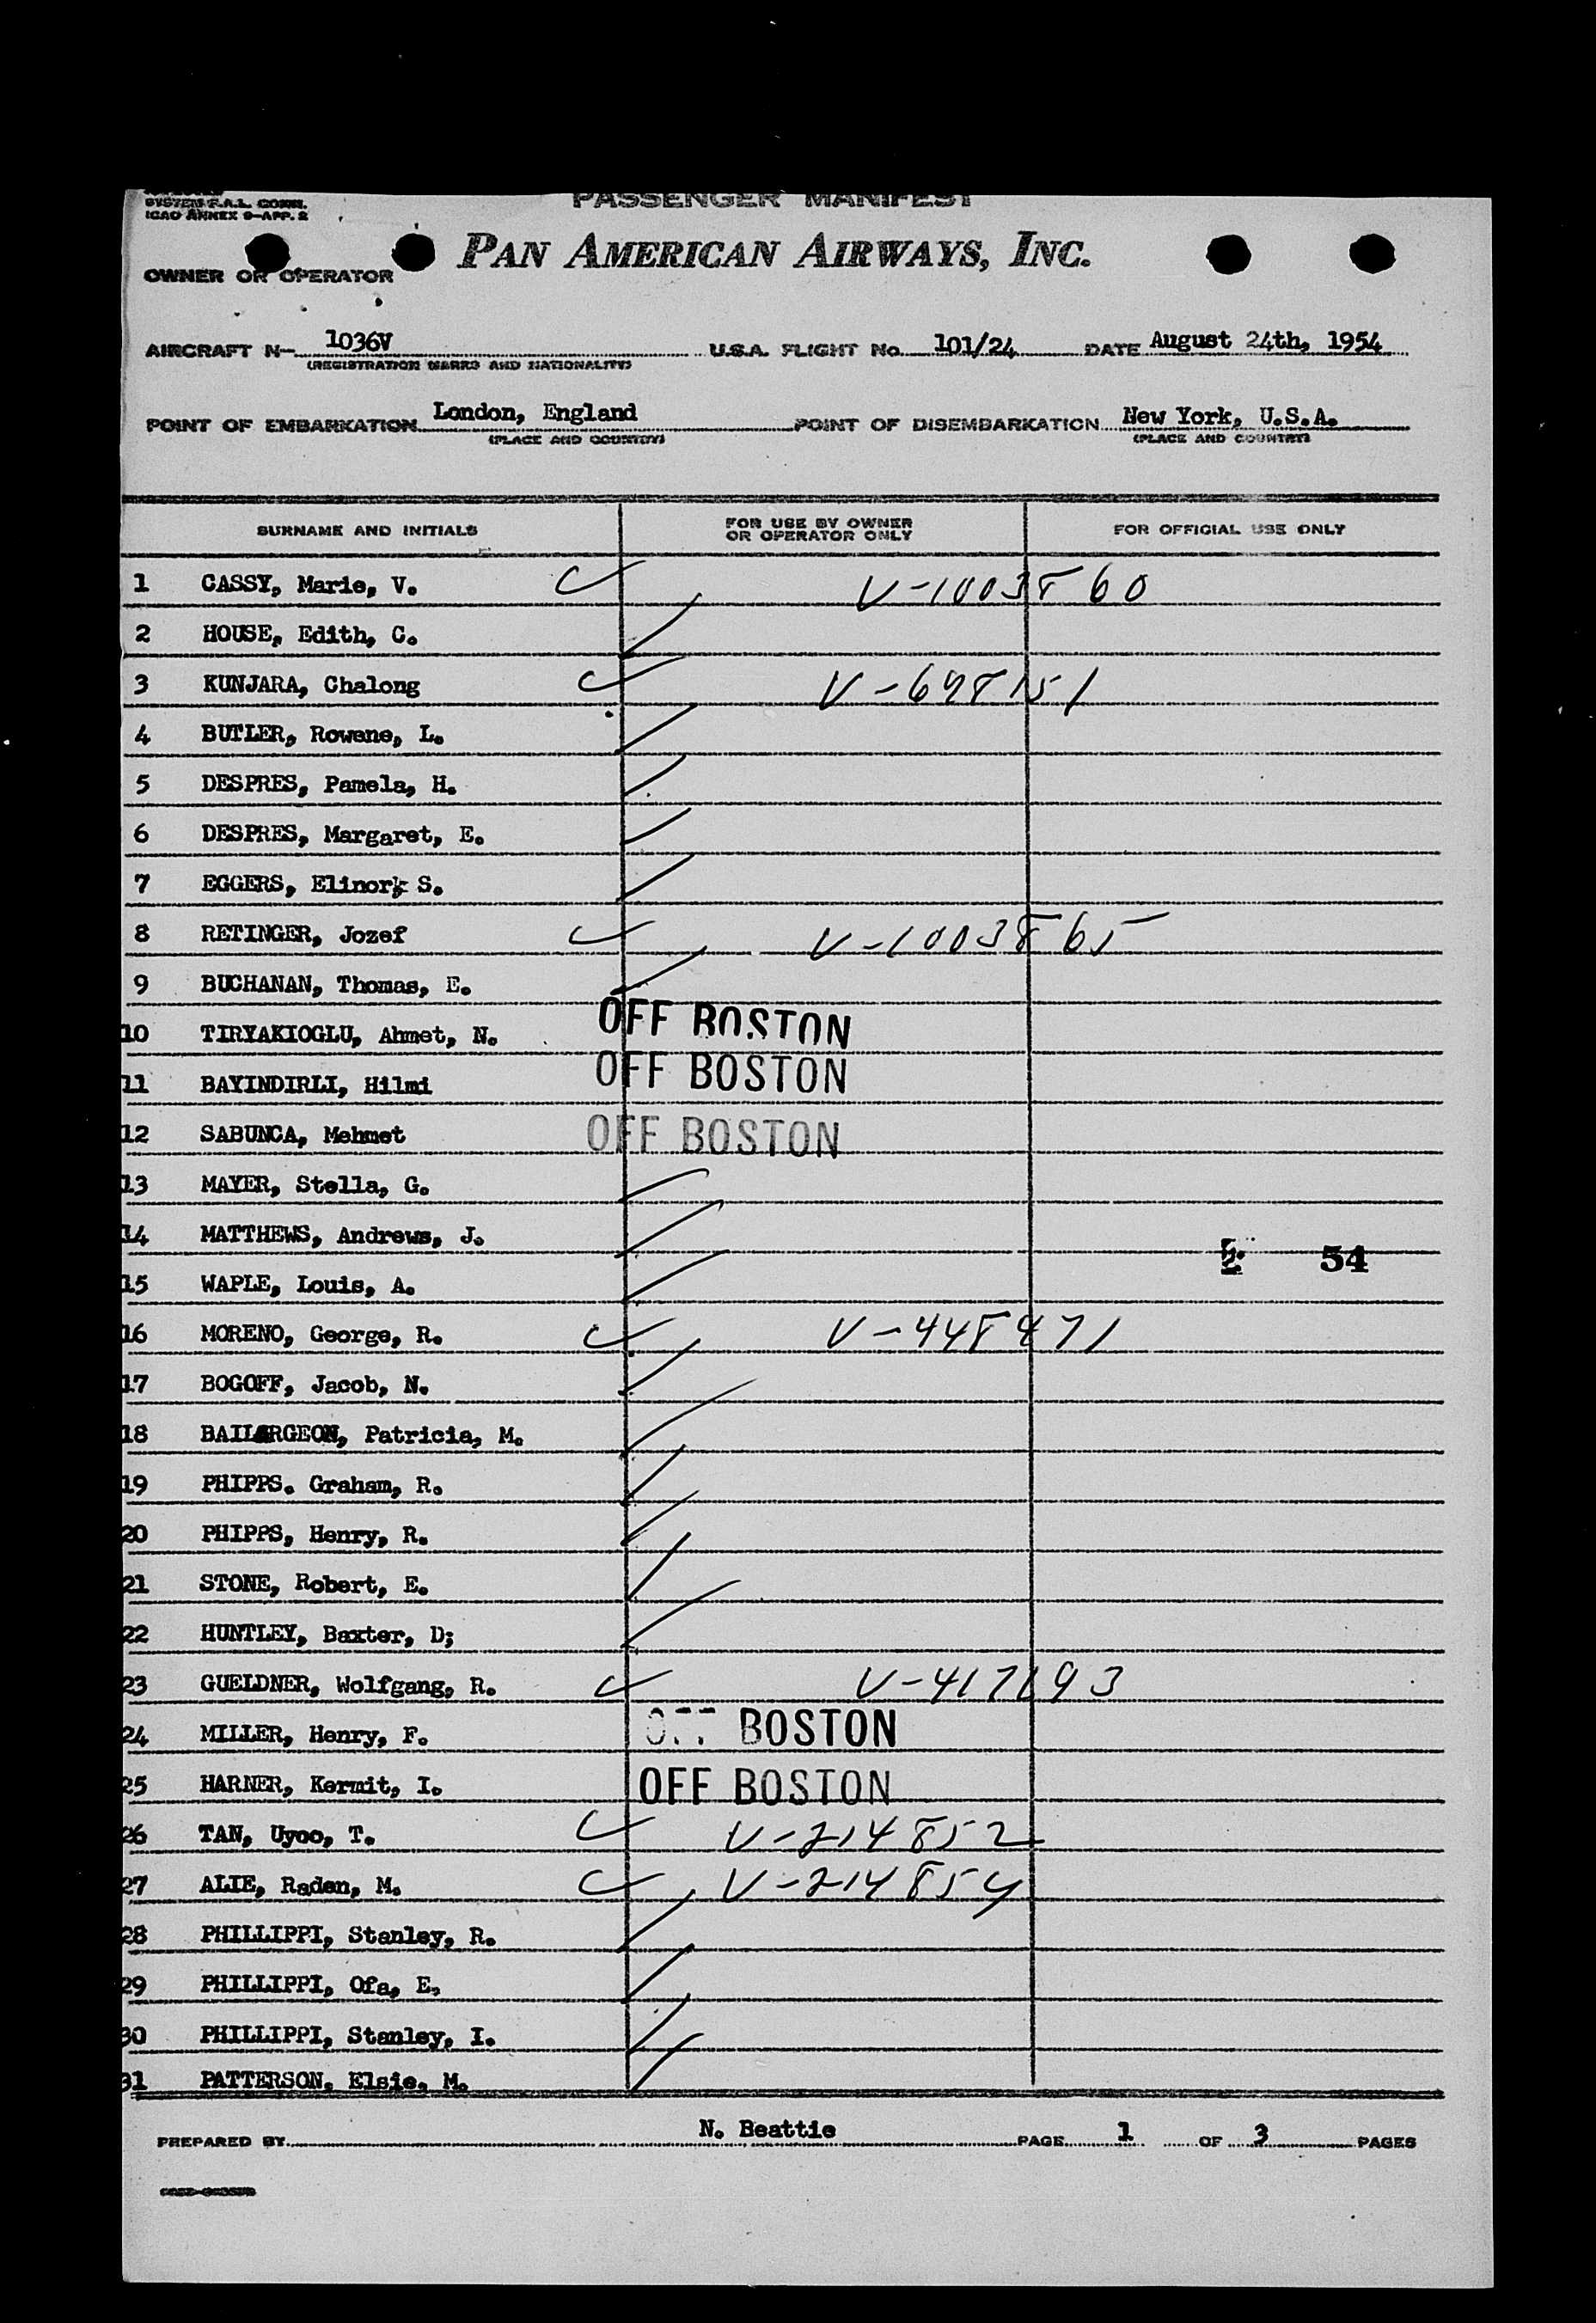 SYSTEM F.A.L. COMM.
ICAO ANNEX 9-APP. 2
PASSENGER MANIFEST
PAN AMERICAN AIRWAYS, INC.
OWNER OR OPERATOR
AIRCRAFT N- 1036V U.S.A. FLIGHT No. 101/24 DATE August 24th, 1954
(REGISTRATION MARKS AND NATIONALITY)
POINT OF EMBARKATION London, England POINT OF DISEMBARKATION New York, U.S.A.
(PLACE AND COUNTRY) (PLACE AND COUNTRY)
SURNAME AND INITIALS FOR USE BY OWNER OR OPERATOR ONLY FOR OFFICIAL USE ONLY
1 CASSY, Marie, V. V-1003860
2 HOUSE, Edith, C.
3 KUNJARA, Chalong V-698151
4 BUTLER, Rowene, L.
5 DESPRES, Pamela, H.
6 DESPRES, Margaret, E.
7 EGGERS, Elinor, S.
8 RETINGER, Jozef V-1003865
9 BUCHANAN, Thomas, E.
10 TIRYAKIOGLU, Ahmet, N. OFF BOSTON
11 BAYINDIRLI, Hilmi OFF BOSTON
12 SABUNCA, Mehmet OFF BOSTON
13 MAYER, Stella, G.
14 MATTHEWS, Andrews, J.
54
15 WAPLE, Louis, A.
16 MORENO, George, R. V-448471
17 BOGOFF, Jacob, N.
18 BAILARGEON, Patricia, M.
19 PHIPPS. Graham, R.
20 PHIPPS, Henry, R.
21 STONE, Robert, E.
22 HUNTLEY, Baxter, D;
23 GUELDNER, Wolfgang, R. V-417193
24 MILLER, Henry, F. OFF BOSTON
25 HARNER, Kermit, I. OFF BOSTON
26 TAN, Uyoo, T. V-214852
27 ALIE, Raden, M. V-214854
28 PHILLIPPI, Stanley, R.
29 PHILLIPPI, Ofa, E.
30 PHILLIPPI, Stanley, I.
31 PATTERSON, Elsie, M.
PREPARED BY N. Beattie PAGE 1 OF 3 PAGES